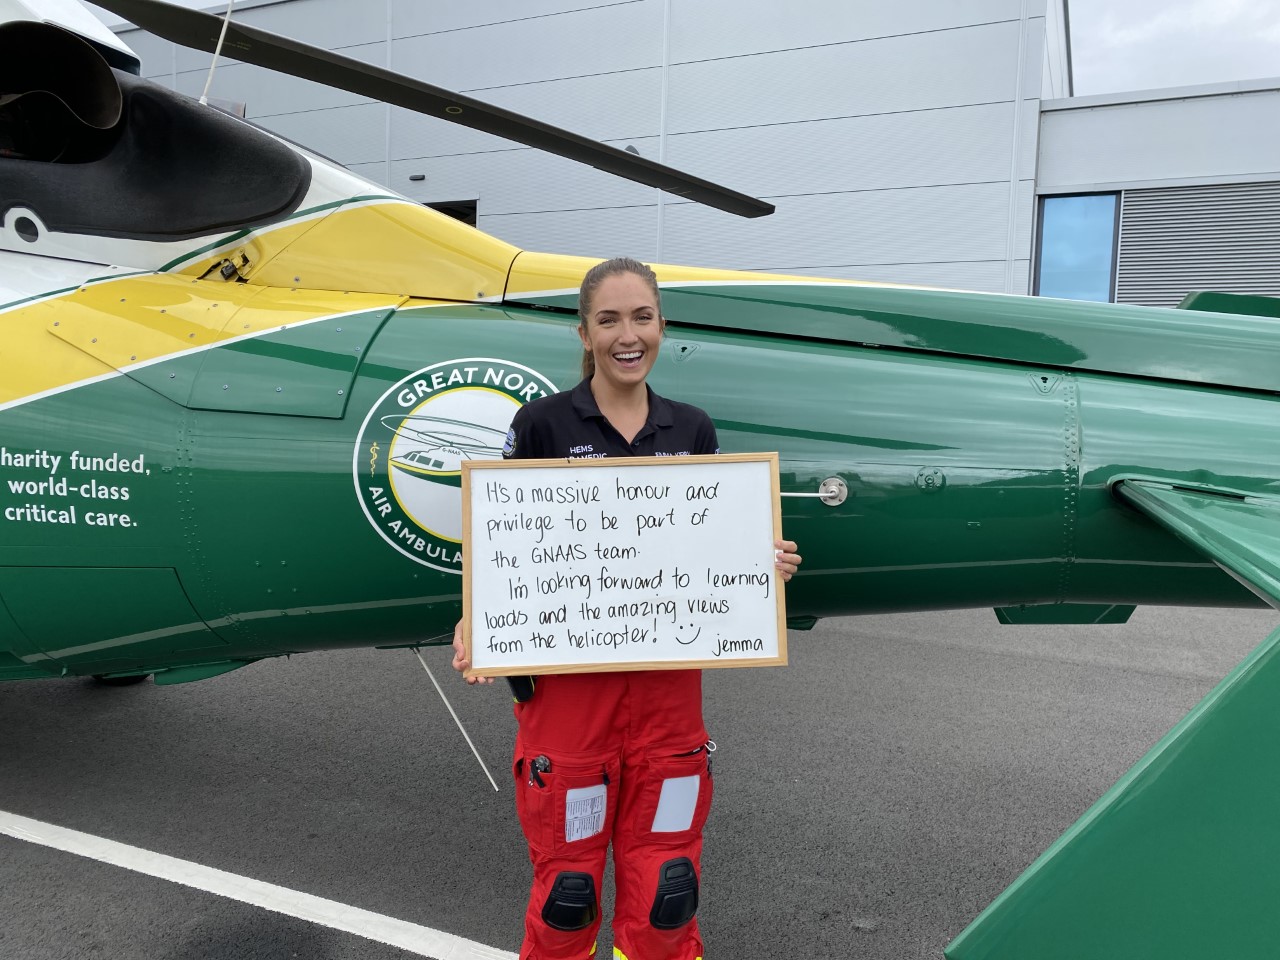 harity funded,
world-class
critical care.
GREAT NORT
AIR AMBULA
G-NAAS
HEMS
It's a massive honour and
privilege to be part of
the GNAAS team.
I'm looking forward to learning
loads and the amazing views
from the helicopter! :)
jemma